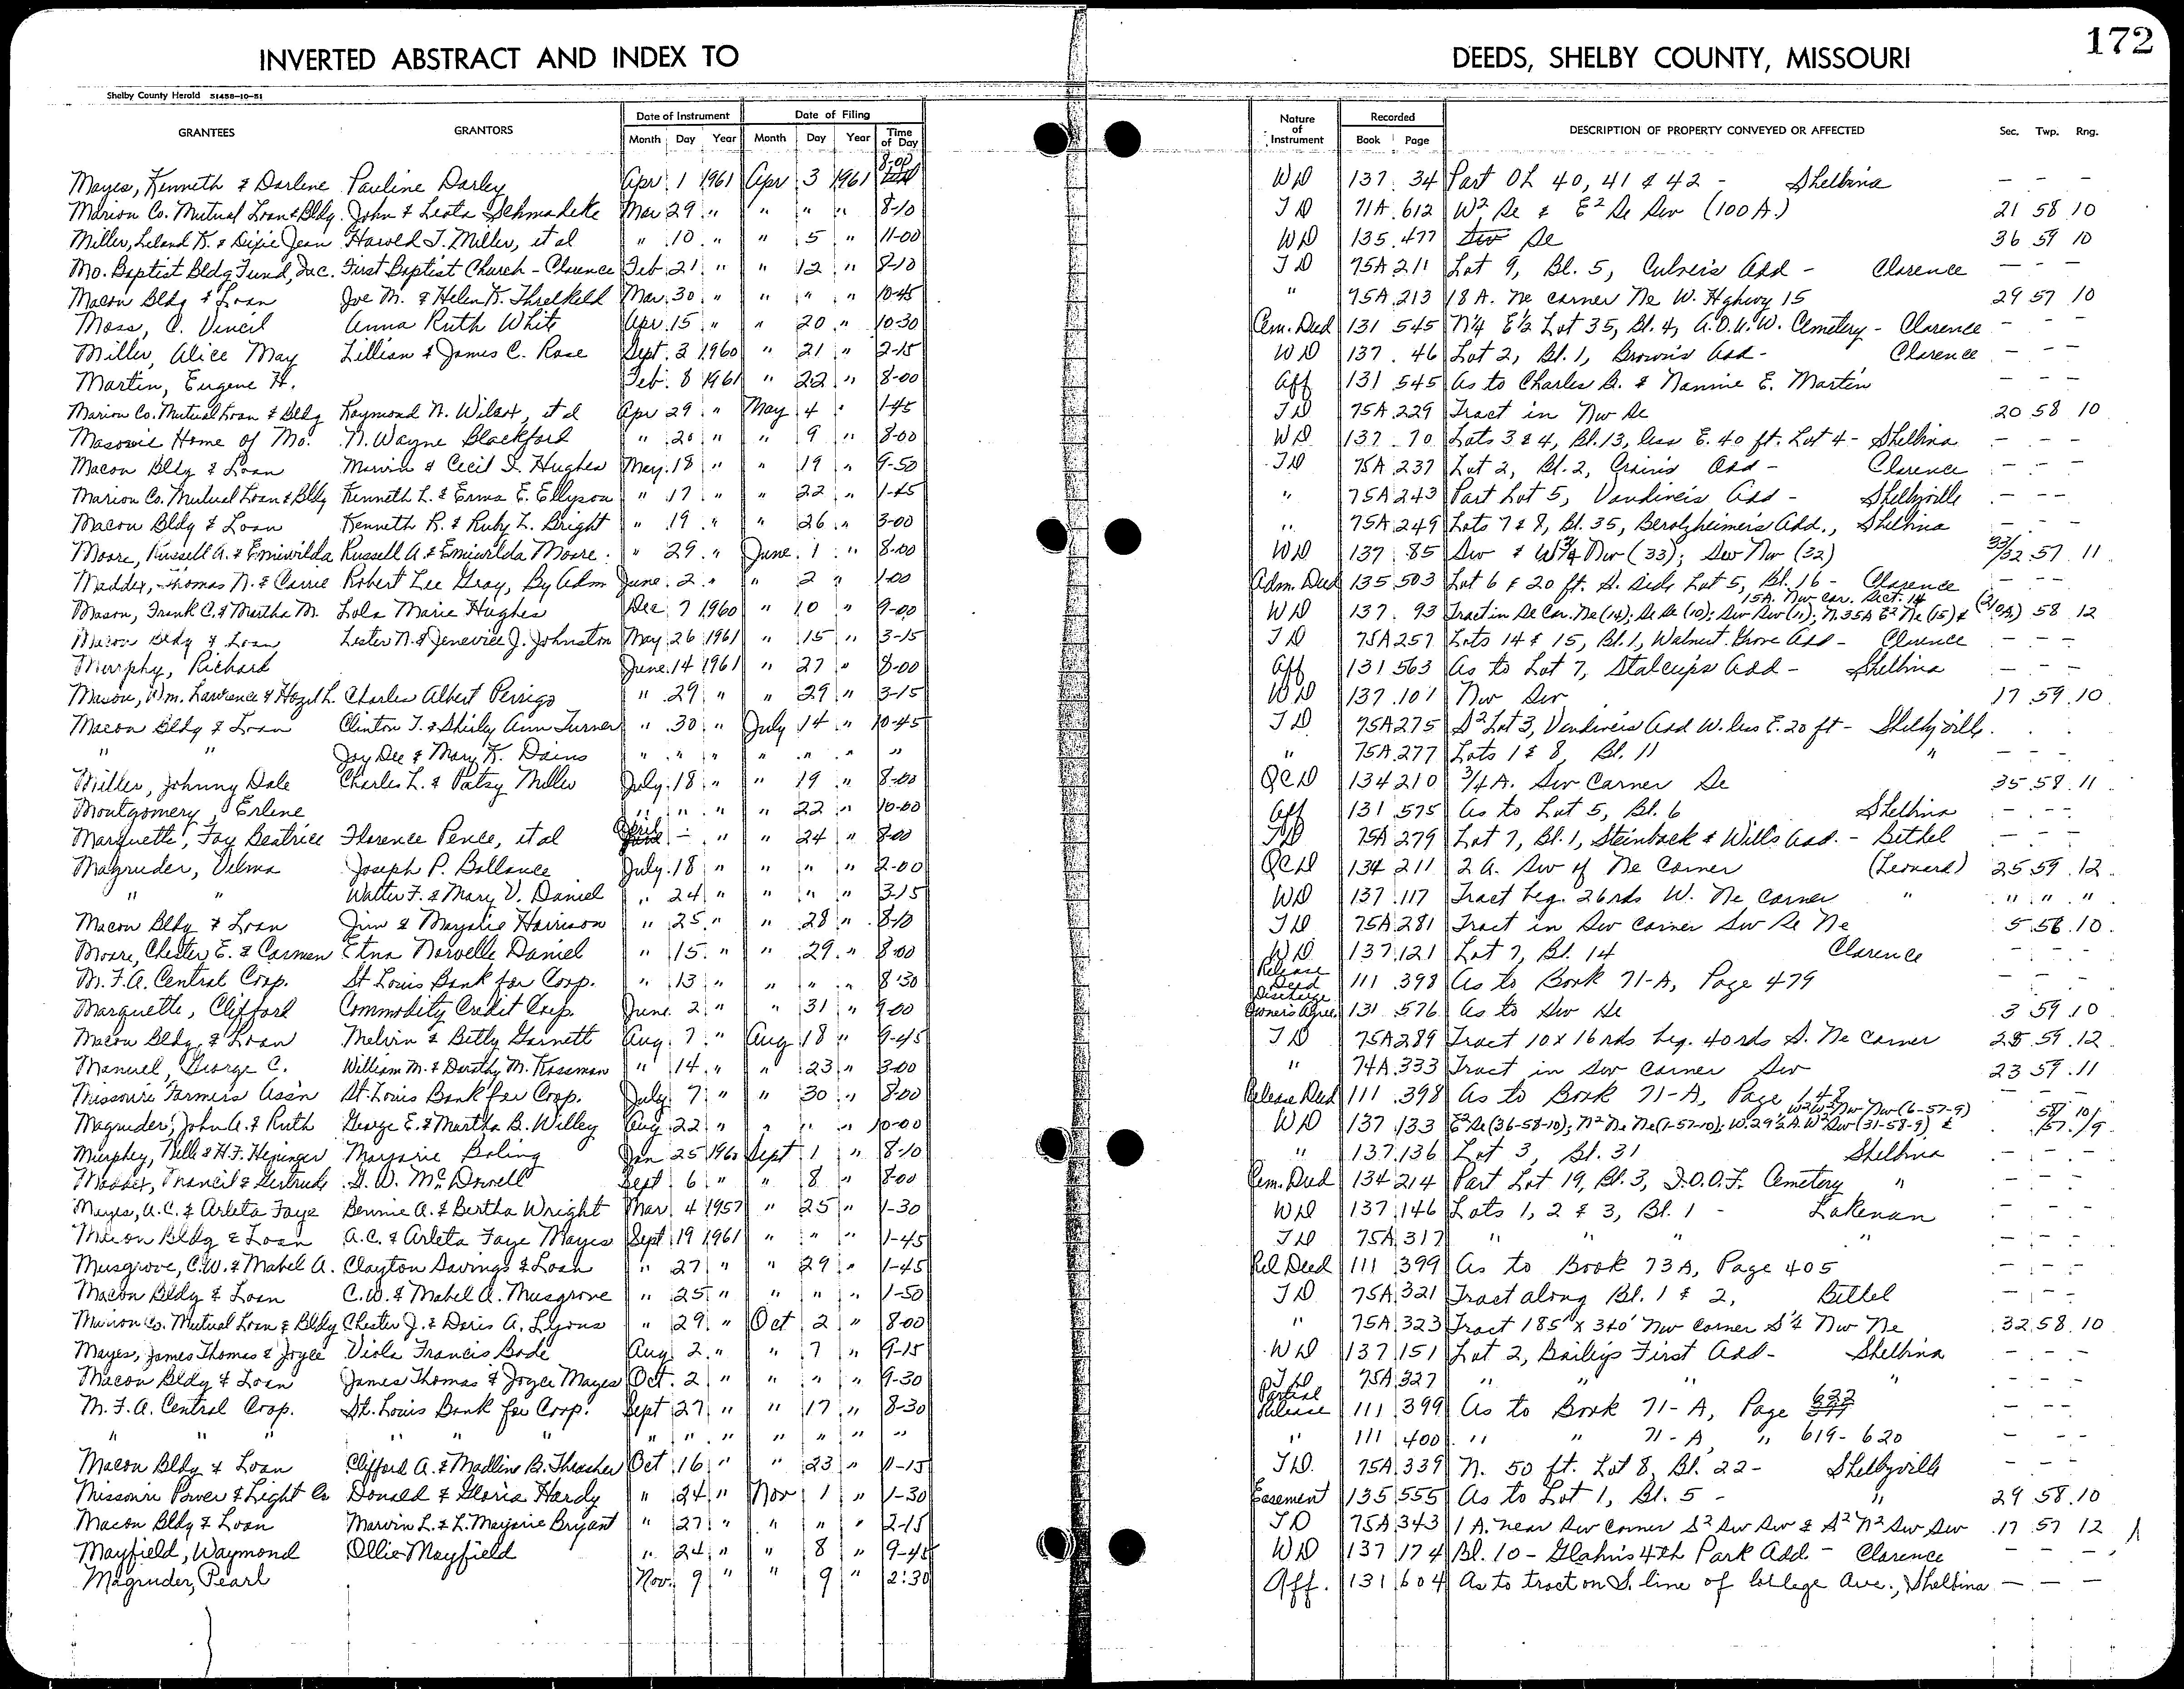 172
INVERTED ABSTRACT AND INDEX TO DEEDS, SHELBY COUNTY, MISSOURI
Shelby County Herald 51458-10-51
GRANTEES GRANTORS Date of Instrument Date of Filing Nature of Instrument Recorded DESCRIPTION OF PROPERTY CONVEYED OR AFFECTED Sec. Twp. Rng.
Month Day Year Month Day Year Time of Day Book Page
Mayes, Kenneth & Darlene Pauline Darley Apr 1 1961 Apr 3 1961 8-00 WD 137 34 Part OL 40, 41 & 42 - Shelbina - - -
Marion Co. Mutual Loan & Bldg. John & Leota Schmadeke Mar 29 " " " " 8-10 TD 71A 612 W² Se & E² Se Sw (100 A.) 21 58 10
Miller, Leland K. & Dixie Jean Harold T. Miller, et al " 10 " " 5 " 11-00 WD 135 477 Se 36 59 10
Mo. Baptist Bldg Fund, Inc. First Baptist Church - Clarence Feb 21 " " 12 " 8-10 TD 75A 211 Lot 9, Bl. 5, Culver's Add - Clarence - - -
Macon Bldg & Loan Joe M. & Helen K. Threlkeld Mar 30 " " " " 10-45 " 75A 213 18 A. Ne corner Ne W. Hghwy 15 29 57 10
Moss, C. Vencil Anna Ruth White Apr. 15 " " 20 " 10-30 Cem. Deed 131 545 N¼ E½ Lot 35, Bl. 4, A.O.U.W. Cemetery - Clarence - - -
Miller, Alice May Lillian & James C. Rose Sept. 2 1960 " 21 " 2-15 WD 137 46 Lot 2, Bl. 1, Brown's Add - Clarence - - -
Martin, Eugene H. Feb. 8 1961 " 22 " 8-00 Aff 131 545 As to Charles B. & Nannie E. Martin - - -
Marion Co. Mutual Loan & Bldg Raymond N. Wilcox, et al Apr 29 " May 4 " 1-45 TD 75A 229 Tract in Nw Se 20 58 10
Masonic Home of Mo. N. Wayne Blackford " 20 " " 9 " 8-00 WD 137 70 Lots 3 & 4, Bl. 13, less E. 40 ft. Lot 4 - Shelbina - - -
Macon Bldg & Loan Marvin & Cecil I. Hughes May 18 " " 19 " 9-50 TD 75A 237 Lot 2, Bl. 2, Crain's Add - Clarence - - -
Marion Co. Mutual Loan & Bldg Kenneth L. & Erma E. Ellyson " 17 " " 22 " 1-45 " 75A 243 Part Lot 5, Vandiver's Add - Shelbyville - - -
Macon Bldg & Loan Kenneth R. & Ruby L. Bright " 19 " " 26 " 3-00 " 75A 249 Lots 7 & 8, Bl. 35, Berolzheimer's Add., Shelbina - - -
Moore, Russell A. & Emiwilda Russell A. & Emiwilda Moore " 29 " June 1 " 8-00 WD 137 85 Sw & W¾ Nw (33); Sew Nw (32) 33/32 57 11
Maddex, Thomas N. & Carrie Robert Lee Gray, By Adm June 2 " " 2 " 1-00 Adm. Deed 135 503 Lot 6 & 20 ft. S. Side Lot 5, Bl. 16 - Clarence - - -
Mason, Frank C. & Martha M. Lola Marie Hughes Dec 7 1960 " 10 " 9-00 WD 137 93 Tract in Se Cor. Ne (14); Se Se (10); Sw Sw (11); N. 35A E² Ne (15) & 15A. Nw cor. Sect. 14 (210A) 58 12
Macon Bldg & Loan Lester N. & Jenevice J. Johnston May 26 1961 " 15 " 3-15 TD 75A 257 Lots 14 & 15, Bl. 1, Walnut Grove Add - Clarence - - -
Murphy, Richard June 14 1961 " 27 " 8-00 Aff 131 563 As to Lot 7, Stalcup's Add - Shelbina - - -
Mason, Wm. Lawrence & Hazel L. Charles Albert Perrigo " 29 " " 29 " 3-15 WD 137 101 Nw Sw 17 59 10
Macon Bldg & Loan Clinton T. & Shirley Ann Turner " 30 " July 14 " 10-45 TD 75A 275 S² Lot 3, Vandiver's Add W. less E. 20 ft - Shelbyville
" " Jay Dee & Mary K. Dains " " " " " " " " 75A 277 Lots 1 & 8, Bl. 11 " - - -
Miller, Johnny Dale Charles L. & Patsy Miller July 18 " " 19 " 8-00 QCD 134 210 3/4 A. Sw Corner Se 35 58 11
Montgomery, Erlene " " " " 22 " 10-00 Aff 131 575 As to Lot 5, Bl. 6 Shelbina - - -
Marquette, Fay Beatrice Florence Pence, et al April - " " 24 " 8-00 TD 75A 279 Lot 7, Bl. 1, Steinback & Wills Add. - Bethel - - -
Magruder, Velma Joseph P. Ballance July 18 " " " " 2-00 QCD 134 211 2 A. Sw of Ne Corner (Leonard) 25 59 12
" " Walter F. & Mary V. Daniel " 24 " " " " 3-15 WD 137 117 Tract beg. 26 rds W. Ne corner " " " "
Macon Bldg & Loan Jim & Marjorie Harrison " 25 " " 28 " 8-10 TD 75A 281 Tract in Sw Corner Sw Se Ne 5 56 10
Moore, Chester E. & Carmen Etna Norvelle Daniel " 15 " " 29 " 8-00 WD 137 121 Lot 7, Bl. 14 Clarence - - -
M.F.A. Central Coop. St Louis Bank for Coop. " 13 " " " " 8-30 Release Deed 111 398 As to Book 71-A, Page 479 - - -
Marquette, Clifford Commodity Credit Corp. June 2 " " 31 " 9-00 Discharge Owner's Agree 131 576 As to Sw Se 3 59 10
Macon Bldg & Loan Melvin & Betty Garnett Aug 7 " Aug 18 " 9-45 TD 75A 289 Tract 10 x 16 rds beg. 40 rds S. Ne Corner 25 59 12
Manuel, George C. William M. & Dorothy M. Rossman " 14 " " 23 " 3-00 " 74A 333 Tract in Sw Corner Sw 23 59 11
Missouri Farmers Ass'n St. Louis Bank for Coop. July 7 " " 30 " 8-00 Release Deed 111 398 As to Book 71-A, Page 148 - - -
Magruder, John A. & Ruth George E. & Martha B. Willey Aug 22 " " " " 10-00 WD 137 133 E² Se (36-58-10); N² Ne Ne (7-57-10); W. 29½ A. W² Sw (31-58-9) & W² W² Nw Nw (6-57-9) 58/57 10/9
Murphey, Nelle & H.F. Heninger Marjorie Boling Jan 25 1960 Sept 1 " 8-10 " 137 136 Lot 3, Bl. 31 Shelbina - - -
Maddex, Francil & Gertrude G. W. McDowell Sept 6 " " 8 " 8-00 Cem. Deed 134 214 Part Lot 19, Bl. 3, I.O.O.F. Cemetery " - - -
Mayes, A.C. & Arleta Faye Bennie A. & Bertha Wright Mar 4 1957 " 25 " 1-30 WD 137 146 Lots 1, 2 & 3, Bl. 1 - Lakenan - - -
Macon Bldg & Loan A.C. & Arleta Faye Mayes Sept 19 1961 " " " 1-45 TD 75A 317 " " " " - - -
Musgrove, C.W. & Mabel A. Clayton Savings & Loan " 27 " " 29 " 1-45 Rel Deed 111 399 As to Book 73A, Page 405 - - -
Macon Bldg & Loan C.W. & Mabel A. Musgrove " 25 " " " " 1-50 TD 75A 321 Tract along Bl. 1 & 2, Bethel - - -
Marion Co. Mutual Loan & Bldg Chester J. & Doris A. Lyons " 29 " Oct 2 " 8-00 " 75A 323 Tract 185' x 340' Nw Corner S½ Nw Ne 32 58 10
Mayes, James Thomas & Joyce Viola Francis Bode Aug 2 " " 7 " 9-15 WD 137 151 Lot 2, Bailey's First Add - Shelbina - - -
Macon Bldg & Loan James Thomas & Joyce Mayes Oct. 2 " " " " 9-30 TD 75A 327 " " " " - - -
M.F.A. Central Coop. St. Louis Bank for Coop. Sept 27 " " 17 " 8-30 Partial Release 111 399 As to Book 71-A, Page 622 - - -
" " " " " " " " " " " " " " 111 400 " " 71-A, " 619-620 - - -
Macon Bldg & Loan Clifford A. & Madline B. Thrasher Oct 16 " " 23 " 11-15 TD 75A 339 N. 50 ft. Lot 8, Bl. 22 - Shelbyville - - -
Missouri Power & Light Co Donald & Gloria Hardy " 24 " Nov 1 " 1-30 Easement 135 555 As to Lot 1, Bl. 5 - " 29 58 10
Macon Bldg & Loan Marvin L. & L. Marjorie Bryant " 27 " " " " 2-15 TD 75A 343 1 A. near Sw Corner S² Sw Sw & S² N² Sw Sw 17 57 12
Mayfield, Waymond Ollie Mayfield " 24 " " 8 " 9-45 WD 137 174 Bl. 10 - Glahn's 4th Park Add - Clarence - - -
Magruder, Pearl Nov. 9 " " 9 " 2:30 Aff. 131 604 As to tract on S. line of College Ave., Shelbina - - -